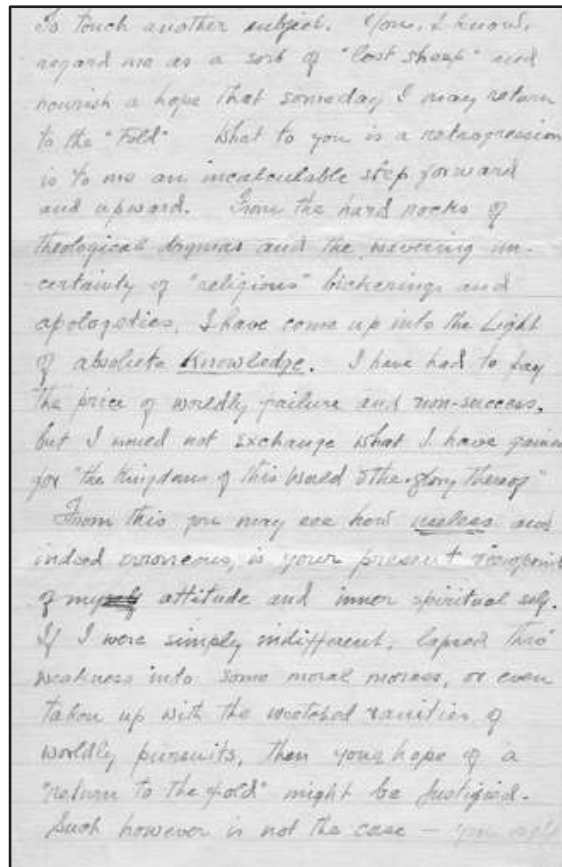 To touch another subject. You, I know,
regard me as a sort of "lost sheep" and
nourish a hope that someday I may return
to the "Fold" What to you is a retrogression
is to me an incalculable step forward
and upward. From the hard rocks of
theological dogmas and the wavering un-
certainty of "religious" bickerings and
apologetics, I have come up into the Light
of absolute Knowledge. I have had to pay
the price of worldly failure and non-success,
but I would not exchange what I have gained
for "the Kingdoms of this World & the glory Thereof"
From this you may see how useless and
indeed erroneous, is your present viewpoint
of my attitude and inner spiritual self.
If I were simply indifferent, lapsed thro'
weakness into some moral morass, or even
taken up with the wretched vanities of
worldly pursuits, then your hope of a
"return to the fold" might be Justified.
Such however is not the case – you